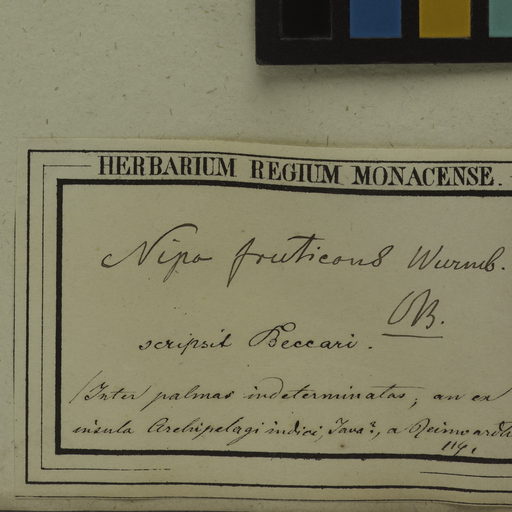 HERBARIUM REGIUM MONACENSE.
Nipa fruticans Wurmb.
OB.
scripsit Beccari.
(Inter palmas indeterminatas; an ex
insula Archipelagi indici, Java?, a Reinwardt